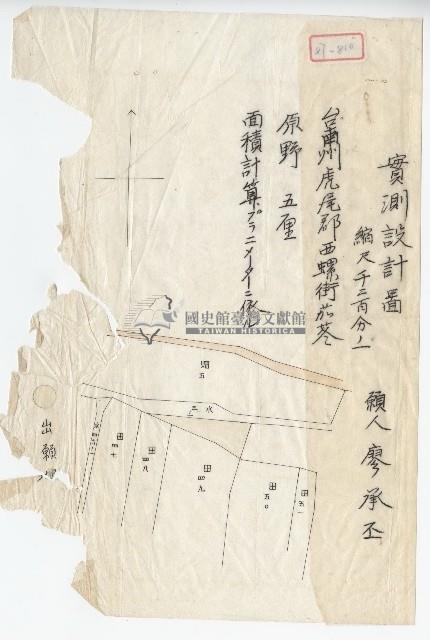 實測設計畧
縮尺千二百分ノ一
願人 廖承丕
台南州虎尾郡西螺街茄苳
原野 五厘
面積計算プラニメーター二依ル
國史館臺灣文獻館
TAIWAN HISTORICA
畑五
水三
田五一
田五〇
田四九
田四八
田四七
出願